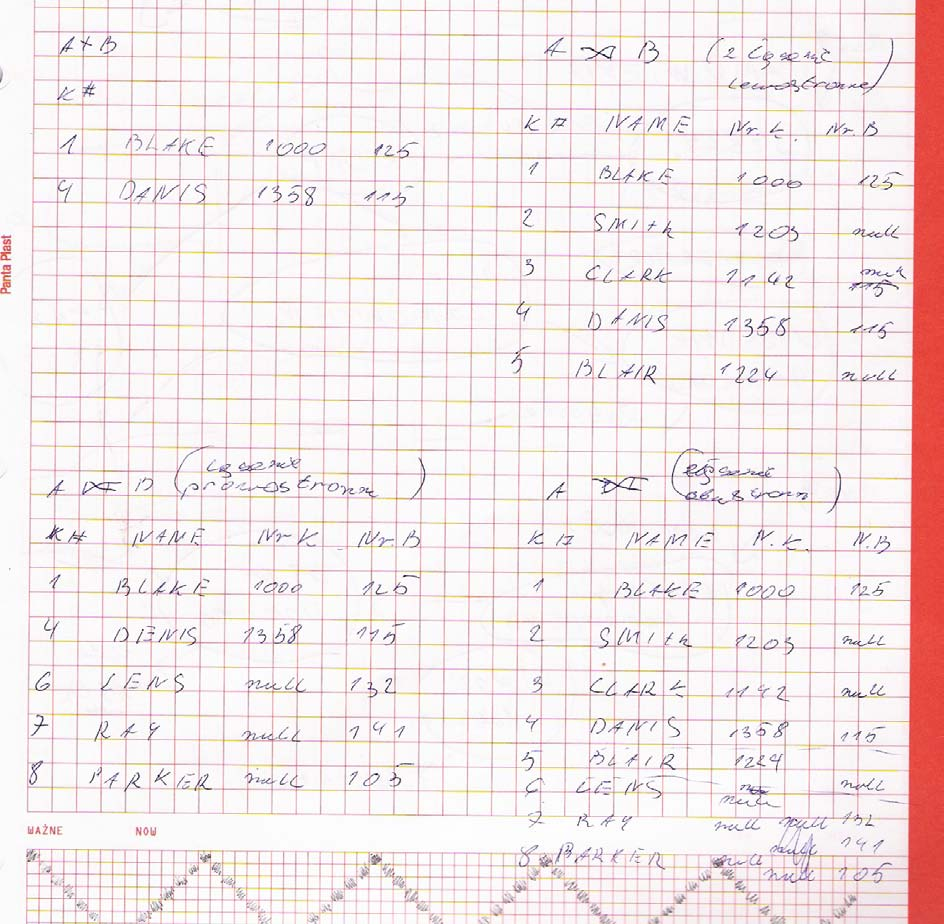 A + B
K#
1 BLAKE 1000 125
4 DANIS 1358 115
A ⟕ B (z łączenie
lewostronne)
K# NAME Nr.K. Nr.B
1 BLAKE 1000 125
2 SMIth 1203 null
3 CLARK 1142 null
115
4 DANIS 1358 115
5 BLAIR 1224 null
A ⋈ B (łączenie
prawostronne)
K# NAME Nr K Nr.B
1 BLAKE 1000 125
4 DENIS 1358 115
6 LENS null 132
7 RAY null 141
8 PARKER null 105
A ⋈ (złączenie
obustronn)
K# NAME N.K. N.B
1 BLAKE 1000 125
2 SMIth 1203 null
3 CLARK 1142 null
4 DANIS 1358 115
5 BLAIR 1224 null
6 LENS null
7 RAY null null 132
null 141
8 PARKER null null 105
Panta Plast
WAŻNE NOW